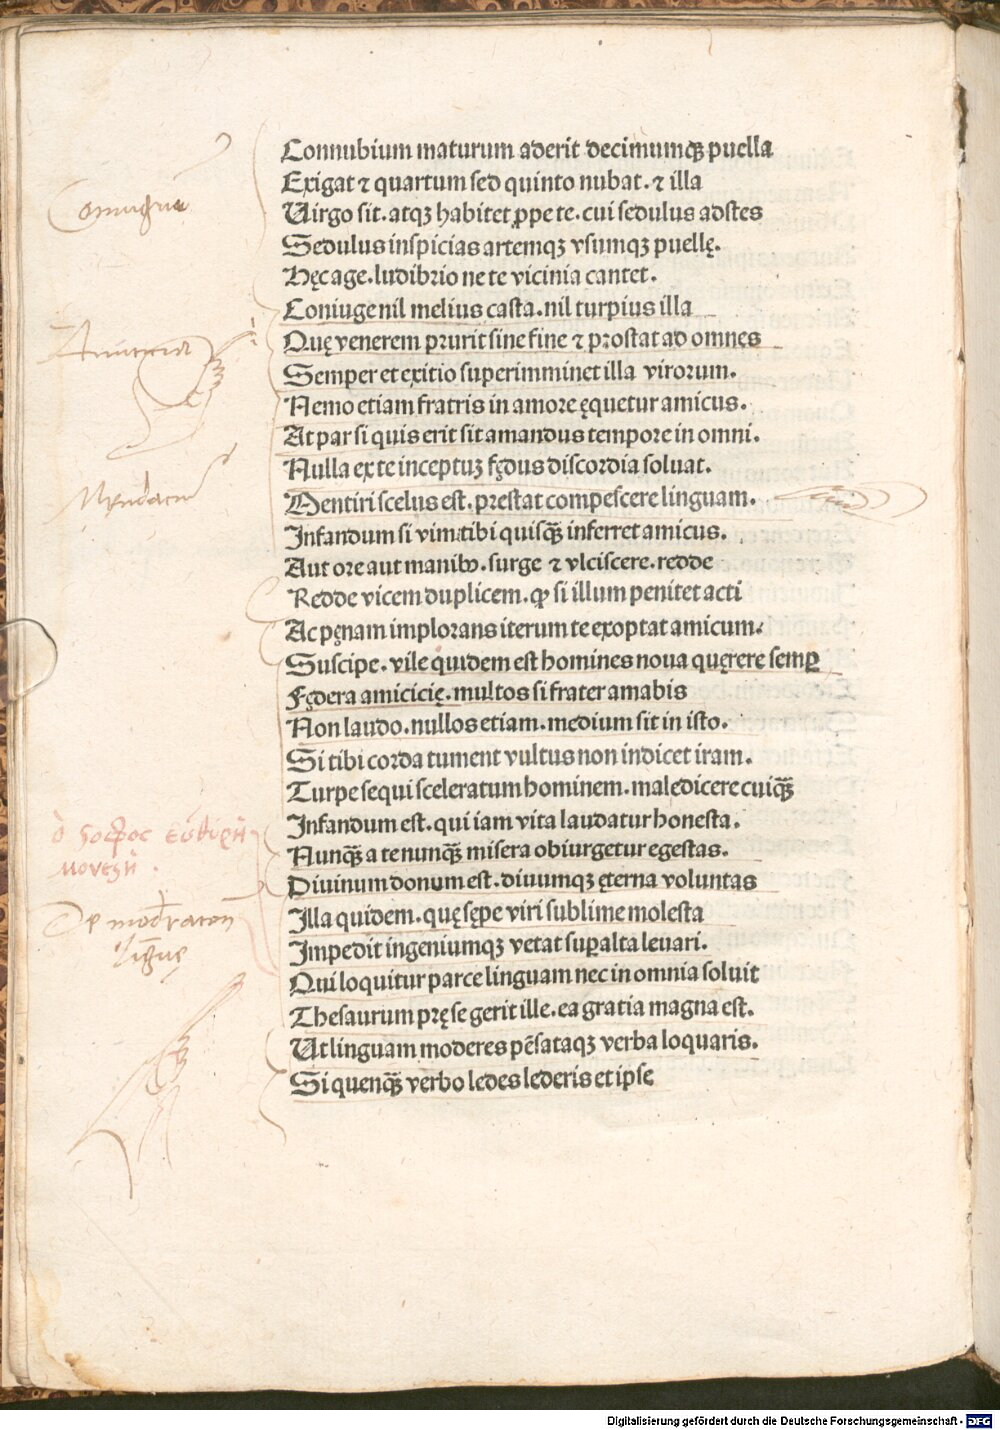 Connubium maturum aderit decimumqꝫ puella
Exigat ⁊ quartum sed quinto nubat. ⁊ illa
Uirgo sit. atqꝫ habitet ꝓpe te. cui sedulus adstes
Sedulus inspicias artemqꝫ vsumqꝫ puellę.
Hęc age. ludibrio ne te vicinia cantet.
Coniuge nil melius casta. nil turpius illa
Quę venerem prurit sine fine ⁊ prostat ad omnes
Semper et exitio superimminet illa virorum.
Nemo etiam fratris in amore ęquetur amicus.
At par si quis erit sit amandus tempore in omni.
Nulla ex te inceptuꝫ fędus discordia soluat.
Mendaciū
Mentiri scelus est. prestat compescere linguam.
Infandum si vim tibi quisqꝫ̄ inferret amicus.
Aut ore aut manibꝰ. surge ⁊ vlciscere. redde
Redde vicem duplicem. ꝙ si illum penitet acti
Ac pęnam implorans iterum te exoptat amicum.
Suscipe. vile quidem est homines noua quęrere semꝑ
Fędera amicicię. multos si frater amabis
Non laudo. nullos etiam. medium sit in isto.
Si tibi corda tument vultus non indicet iram.
Turpe sequi sceleratum hominem. maledicere cuiqꝫ̄
Infandum est. qui iam vita laudatur honesta.
Nunqꝫ̄ a te nunqꝫ̄ misera obiurgetur egestas.
Diuinum donum est. diuumqꝫ ęterna voluntas
Illa quidem. quę sępe viri sublime molesta
Impedit ingeniumqꝫ vetat suꝑ alta leuari.
Qui loquitur parce linguam nec in omnia soluit
Thesaurum pręse gerit ille. ea gratia magna est.
Ut linguam moderes pēsataqꝫ verba loquaris.
Si quenqꝫ̄ verbo ledes lederis et ipse
Digitalisierung gefördert durch die Deutsche Forschungsgemeinschaft - DFG